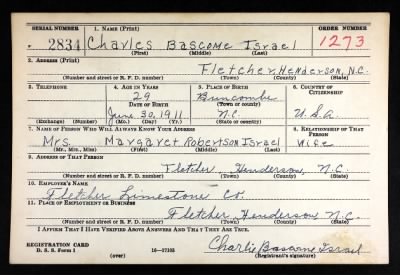 SERIAL NUMBER 1. NAME (Print) ORDER NUMBER
2834 Charles Bascome Israel 1273
(First) (Middle) (Last)
2. ADDRESS (Print)
Fletcher, Henderson, N.C.
(Number and street or R. F. D. number) (Town) (County) (State)
3. TELEPHONE 4. AGE IN YEARS 5. PLACE OF BIRTH 6. COUNTRY OF CITIZENSHIP
29 Buncombe
DATE OF BIRTH (Town or county)
June 30, 1911 N.C. U.S.A
(Exchange) (No.) (Mo.) (Day) (Yr.) (State or country)
7. NAME OF PERSON WHO WILL ALWAYS KNOW YOUR ADDRESS 8. RELATIONSHIP OF THAT PERSON
Mrs. Margaret Robertson Israel Wife
(Mr., Mrs., Miss) (First) (Middle) (Last)
9. ADDRESS OF THAT PERSON
Fletcher, Henderson, N.C.
(Number and street or R. F. D. number) (Town) (County) (State)
10. EMPLOYER'S NAME
Fletcher Limestone Co.
11. PLACE OF EMPLOYMENT OR BUSINESS
Fletcher, Henderson N.C.
(Number and street or R. F. D. number) (Town) (County) (State)
I AFFIRM THAT I HAVE VERIFIED ABOVE ANSWERS AND THAT THEY ARE TRUE.
REGISTRATION CARD
D. S. S. Form 1 16-17105 Charlie Bascome Israel
(over) (Registrant's signature)